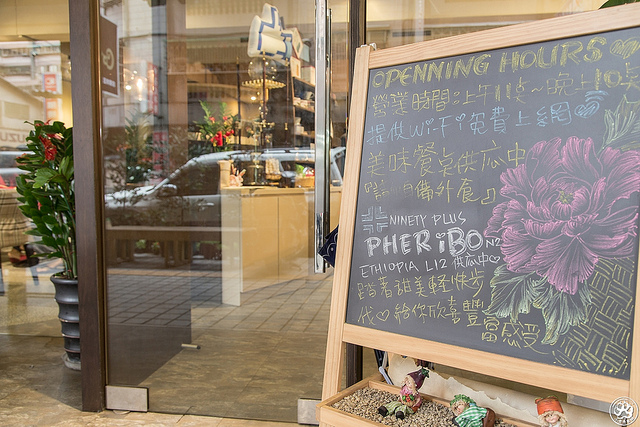 OPENNING HOURS
營業時間:上午11點~晚上10點
提供Wi-Fi免費上網
美味餐点供应中
自備外食
NINETY PLUS
PHER iBO N2
ETHIOPIA L12 供应中♡
踏著甜美輕快步
代♡給你欣喜豐
富感受